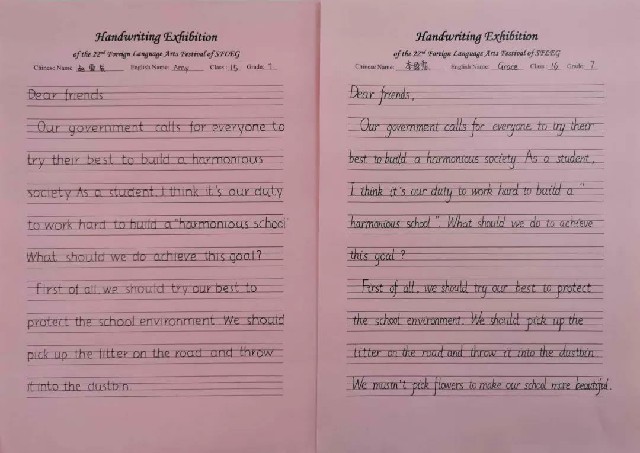 Handwriting Exhibition
of the 22nd Foreign Language Arts Festival of SFLEG
Chinese Name: English Name: Amy Class: 15 Grade: 7
Dear friends
Our government calls for everyone to
try their best to build a harmonious
society As a student. I think it's our duty
to work hard to build a "harmonious school"
What should we do achieve this goal?
First of all we should try our best to
protect the school environment. We should
pick up the litter on the road and throw
it into the dustbin
Handwriting Exhibition
of the 22nd Foreign Language Arts Festival of SFLEG
Chinese Name: English Name: Grace Class: 16 Grade: 7
Dear friends,
Our government calls for everyone to try their
best to build a harmonious society. As a student,
I think it's our duty to work hard to build a "
harmonious school". What should we do to achieve
this goal?
First of all, we should try our best to protect
the school environment. We should pick up the
litter on the road and throw it into the dustbin
We musn't pick flowers to make our school more beautiful.